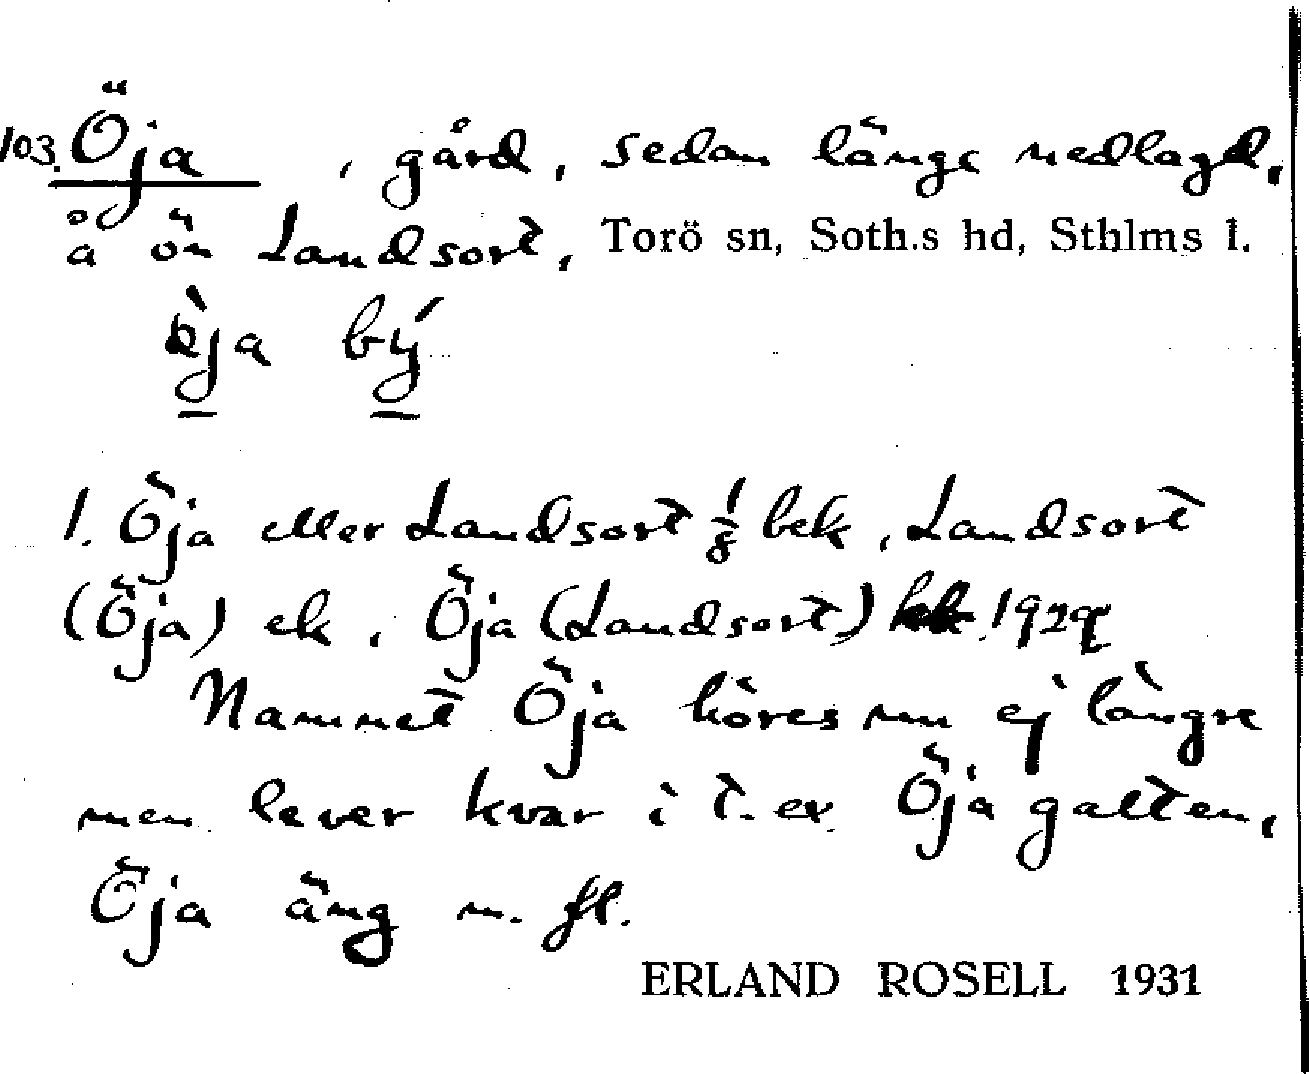 103. Öja, gård, sedan länge nedlagd,
å ön Landsort, Torö sn, Soth.s hd, Sthlms l.
by
1. Öja eller Landsort 1/8 bek, Landsort
(Öja) ek, Öja (Landsort) 1929
Namnet Öja höres nu ej längre
men lever kvar i t. ex. Öja galten,
Öja äng m. fl.
ERLAND ROSELL 1931